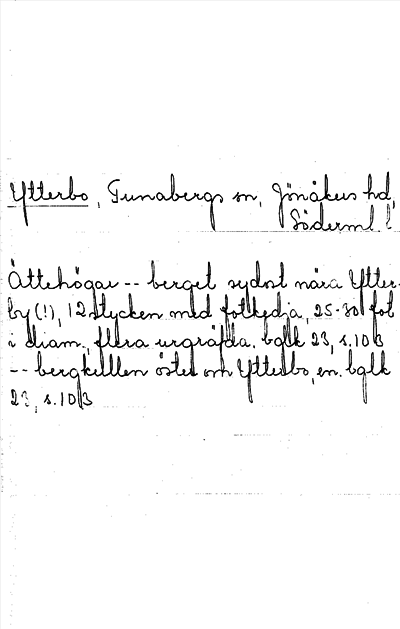 Ytterbo, Tunabergs sn, Jönåkers hd,
Söderml. l
Ättehögar -- berget sydost nära Ytter-
by (!), 12 stycken med fotkedja, 25-30 fot
i diam., flera urgräfda. bglk 23, s. 103
-- bergkulllen öster om Ytterbo, en. bglk
23, s. 103